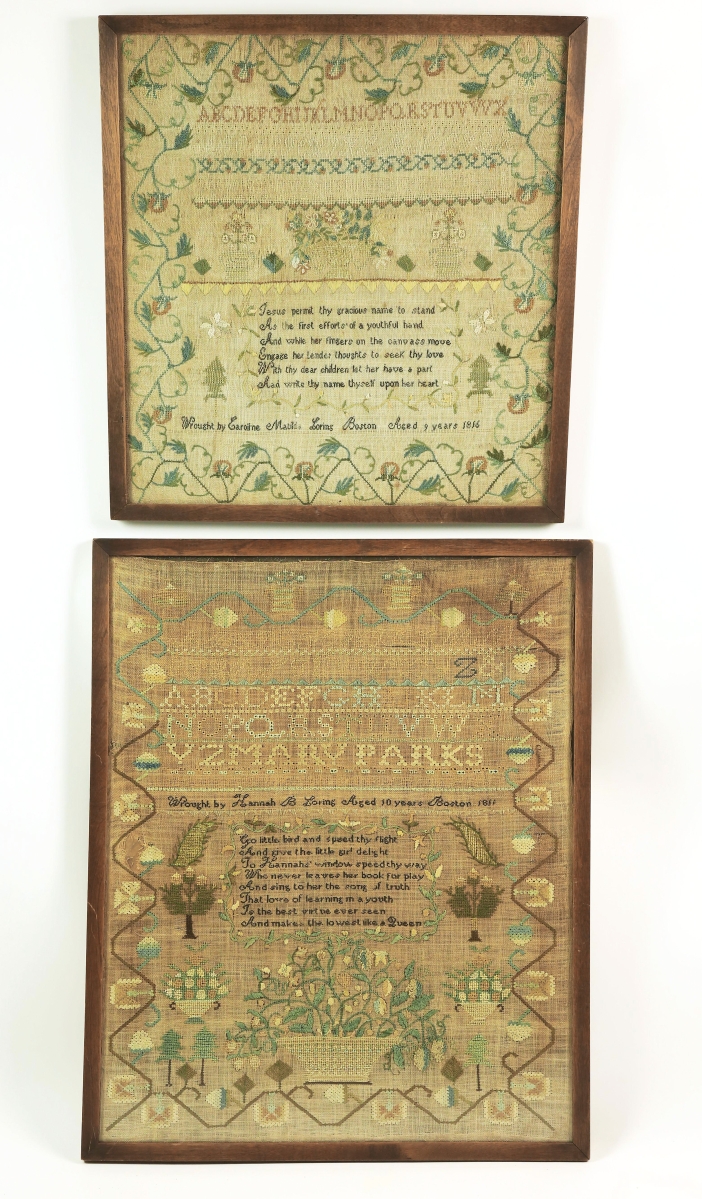 ABCDEFGHIJKLMNOPQRSTUVWX
Jesus permit thy gracious name to stand
As the first efforts of a youthful hand
And while her fingers on the canvass move
Engage her tender thoughts to seek thy love
With thy dear children let her have a part
And write thy name thyself upon her heart
Wrought by Caroline Matilda Loring Boston Aged 9 years 1816
Z
ABCDEFGH KLM
N PQRS VW
YZ MARY PARKS
Wrought by Hannah B Loring Aged 10 years Boston 1811
Go little bird and speed thy flight
And give the little girl delight
To Hannahs window speed thy way
Who never leaves her book for play
And sing to her the song of truth
That love of learning in a youth
Is the best virtue ever seen
And makes the lowest like a Queen